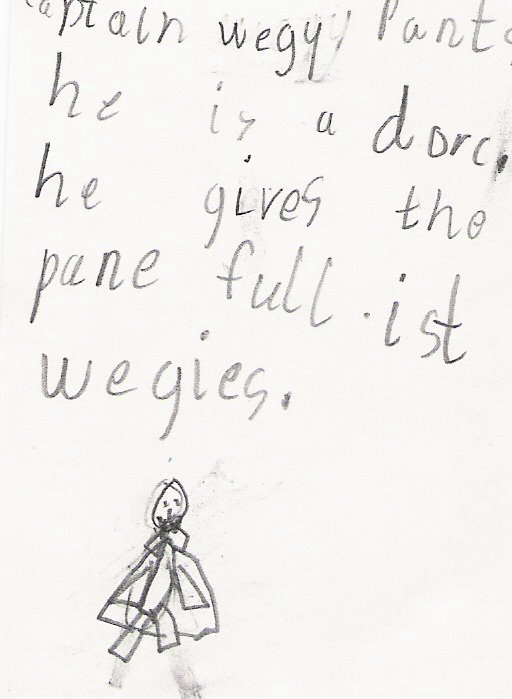 captain wegy Pants
he is a dorc.
he gives the
pane full.ist
wegies.